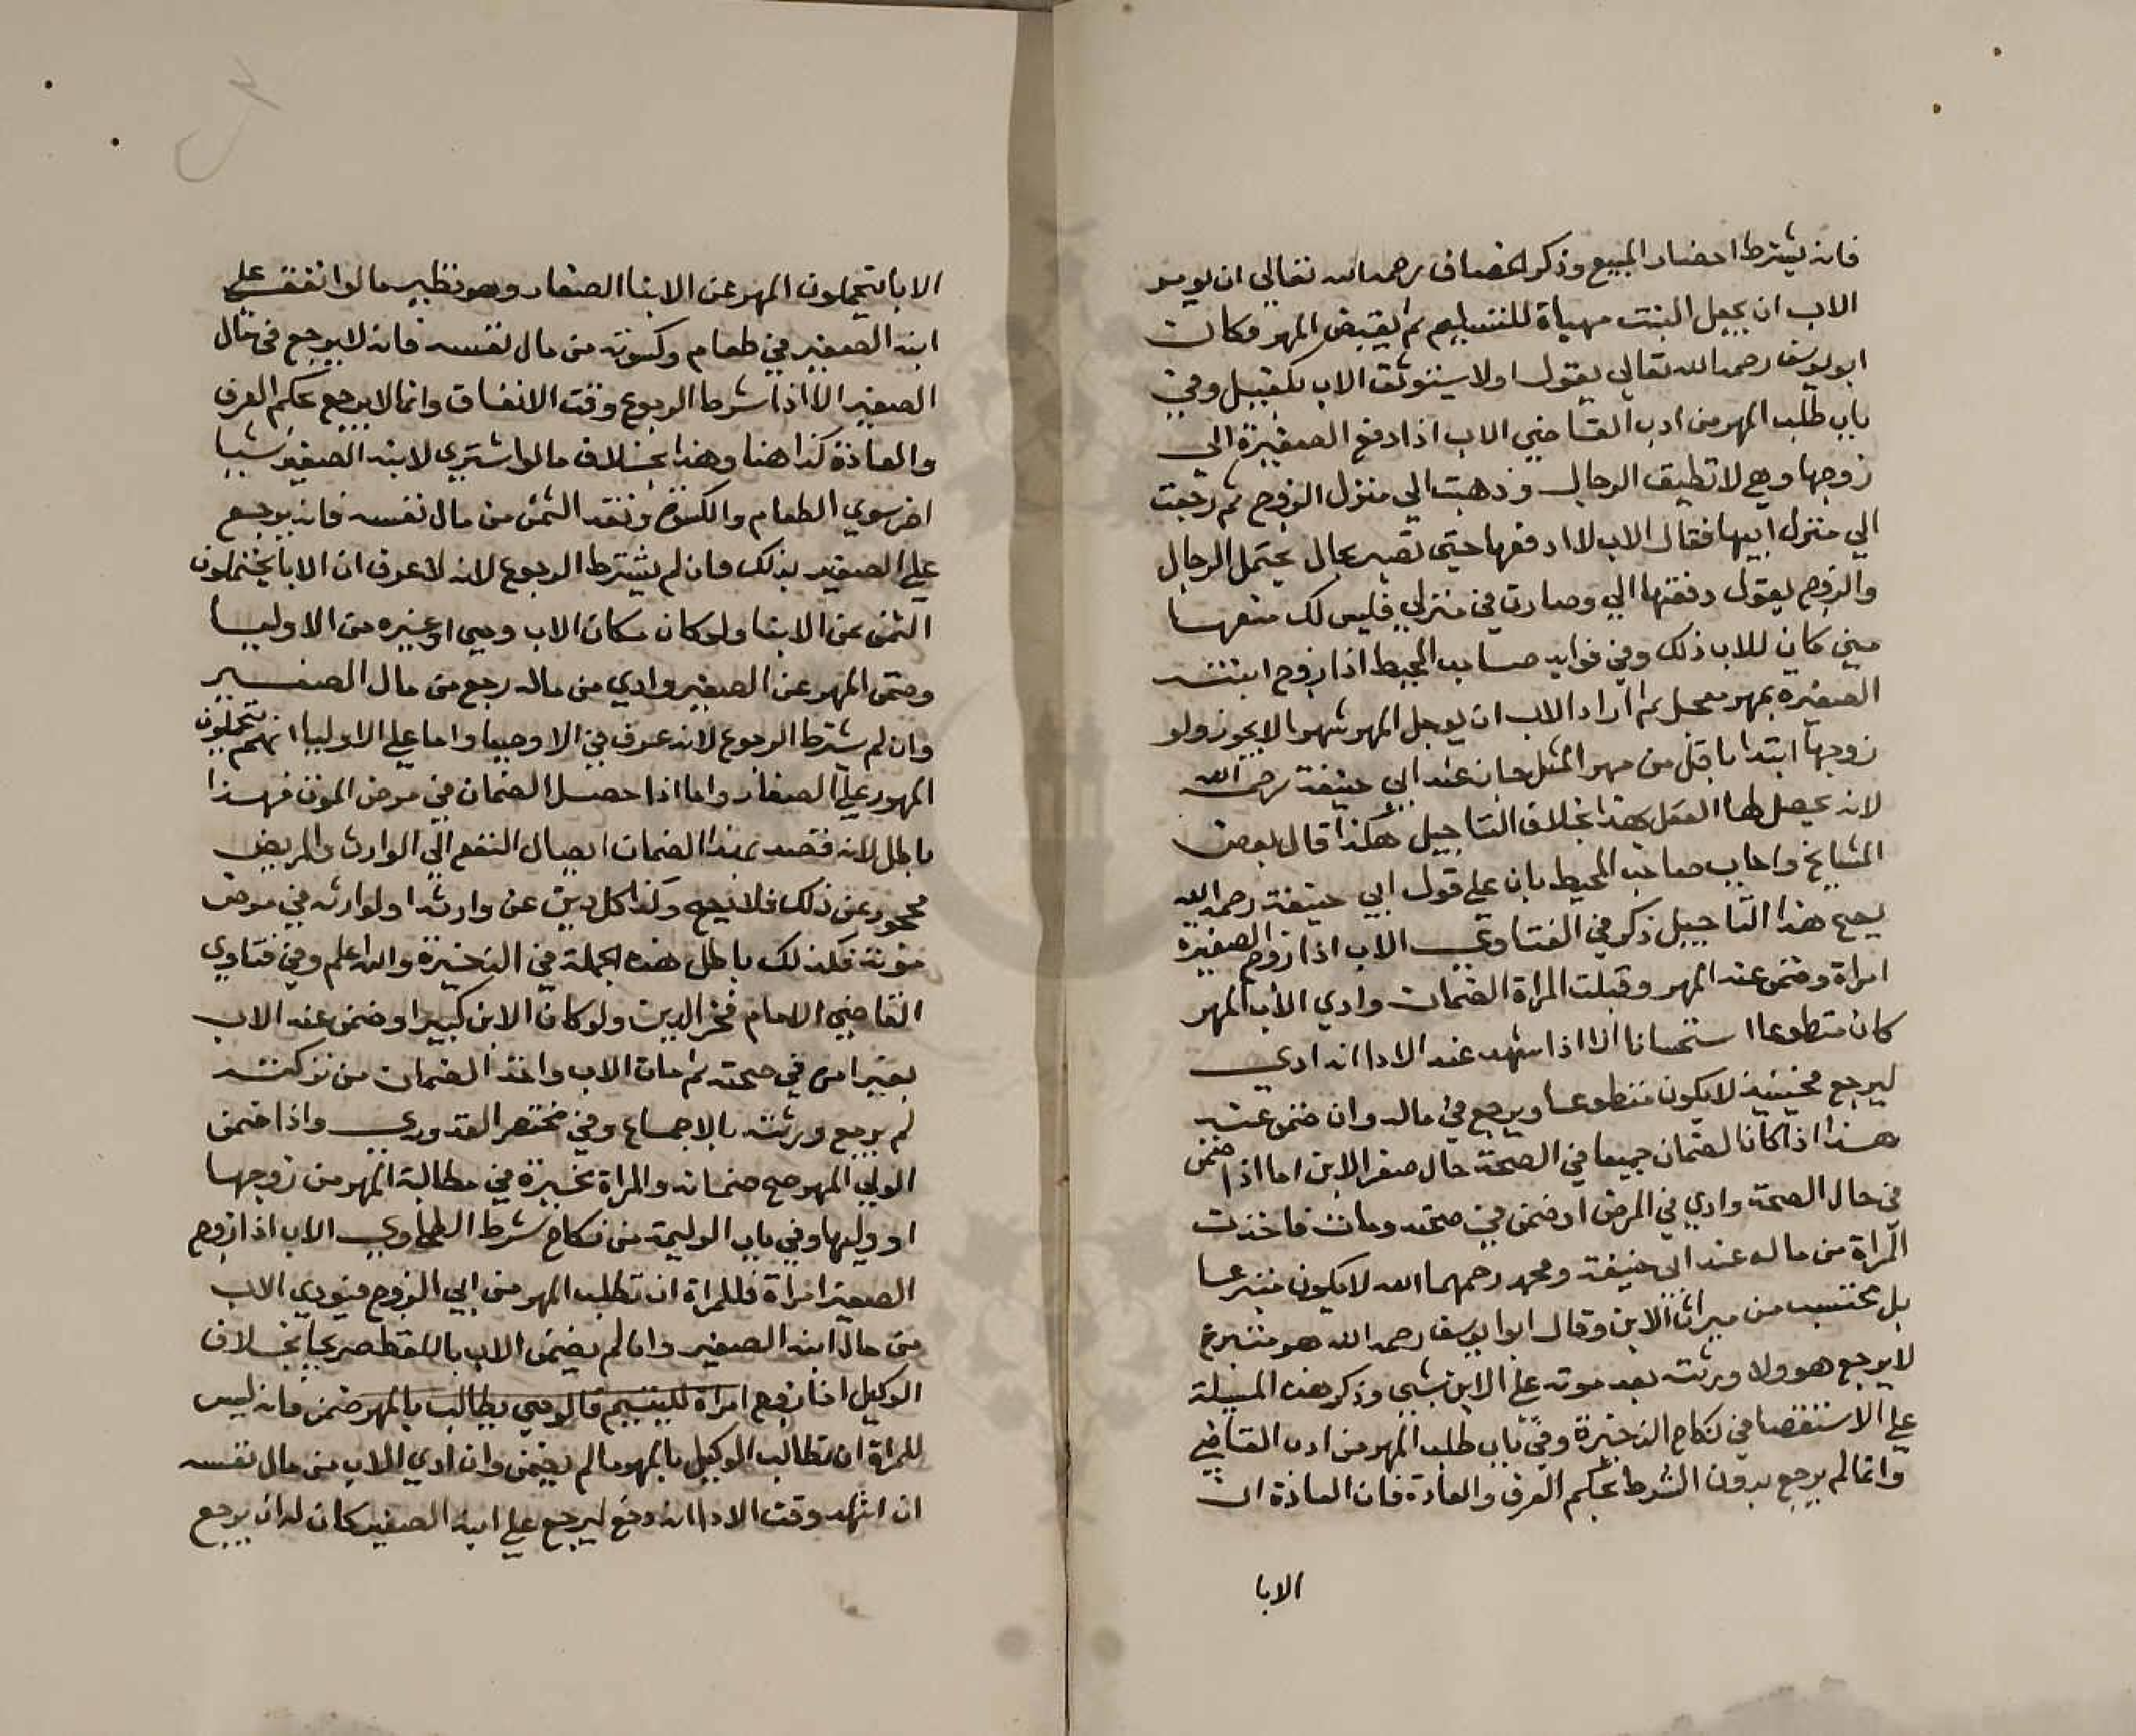 فانه يشترط احضار المبيع وذكر الخصاف رحمه الله تعالى ان يومر
الاب ان يجعل البنت مهياة للتسليم ثم يقبض المهر وكان
ابو يوسف رحمه الله تعالى يقول اولا يستوثق الاب بكفيل وفي
باب طلب المهر من ادب القاضي الاب اذا دفع الصغيرة الى
زوجها وهي لا تطيق الرجال وذهبت الي منزل الزوج ثم رجعت
الي منزل ابيها فقال الاب لا ادفعها حتى تصير بحال يحتمل الرجال
والزوج يقول دفعتها الي وصارت في منزلي فليس لك منعها
مني كان للاب ذلك وفي فوايد صاحب المحيط اذا زوج ابنته
الصغيرة بمهر معجل ثم اراد الاب ان يوجل المهر شهرا لا يجوز ولو
زوجها ابتدا باقل من مهر المثل جاز عند ابي حنيفة رحمه الله
لانه يحصل لها بهذا بخلاف التاجيل هكذا قال بعض
المشايخ واجاب صاحب المحيط بان علي قول ابي حنيفة رحمه الله
يصح هذا التاجيل ذكر في الفتاوي الاب اذا زوج الصغيرة
امراة وضمن عنه المهر وقبلت المراة الضمان وادي الاب المهر
كان متطوعا استحسانا الا اذا شهد عند الادا انه ادي
ليرجع فحينيذ لا يكون متطوعا ويرجع في ماله وان ضمن عنه
هذا اذا كان الضمان جميعا في الصحة حال صغر الابن اما اذا ضمن
في حال الصحة وادي في المرض او ضمن في صحته ومات فاخذت
المراة من ماله عند ابي حنيفة ومحمد رحمهما الله لا يكون متبرعا
بل يحتسب من ميراث الابن وقال ابو يوسف رحمه الله هو متبرع
لا يرجع هو ولا ورثته بعد موته علي الابن بشي وذكر هذه المسيلة
علي الاستقصا في نكاح الذخيرة وفي باب طلب المهر من ادب القاضي
وانما لم يرجع بدون الشرط بحكم العرف والعادة فان العادة ان
الابا
الابا يتحملون المهر عن الابنا الصغار وهو نظير ما لو انفق علي
ابنه الصغير في طعام وكسوته من مال نفسه فانه لا يرجع في مال
الصغير الا اذا شرط الرجوع وقت الانفاق وانما لا يرجع بحكم العرف
والعادة كذا هنا وهذا بخلاف ما لو اشتري لابنه الصغير شيا
اخر سوي الطعام والكسوة ونقد الثمن من مال نفسه فانه يرجع
علي الصغير بذلك وان لم يشترط الرجوع لانه لا عرف ان الابا يتحملون
الثمن عن الابنا ولو كان مكان الاب وصي او غيره من الاوليا
وضمن المهر عن الصغير وادي من ماله رجع من مال الصغير
وان لم يشترط الرجوع لانه عرف في الاوصيا واما علي الاوليا انهم يتحملون
المهور علي الصغار واما اذا حصل الضمان في مرض الموت فهذا
باطل لانه قصد بهذا الضمان ايصال النفع الي الوارث والمريض
محجور عن ذلك فلا يصح وكذا كل دين عن وارثه او لوارثه في مرض
موته فكذلك باطل هذه الجملة في الذخيرة والله اعلم وفي فتاوي
القاضي الامام فخر الدين ولو كان الابن كبيرا وضمن عنه الاب
بغير امره في صحته ثم مات الاب واخذ الضمان من تركته
لم يرجع ورثته بالاجماع وفي مختصر القدوري واذا ضمن
الولي المهر صح ضمانه والمراة مخيرة في مطالبة المهر من زوجها
او وليها وفي باب الوليمة من نكاح شرط الطحاوي الاب اذا زوج
الصغير امراة فللمراة ان تطلب المهر من ابي الزوج فيودي الاب
من مال ابنه الصغير وان لم يضمن الاب باللفظ صريحا بخلاف
الوكيل اذا زوج امراة لليتيم فالوصي يطالب بالمهر ضمن فانه ليس
للمراة ان تطالب الوكيل بالمهر ما لم يضمن وان ادي الاب من مال نفسه
ان اشهد وقت الادا انه دفع ليرجع علي ابنه الصغير كان له ان يرجع